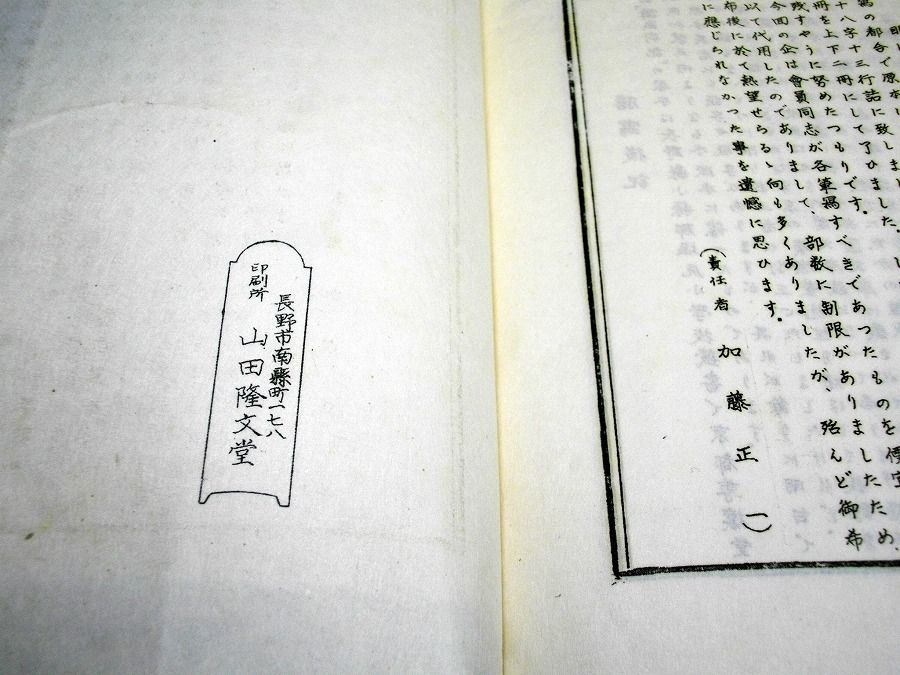 都合で原本に致しました。
十八字十三行詰にして了ひました。
冊を上下二冊にしたつもりです。
残すやうに努め
今回の企は會員同志が各筆寫すべきであつたものを便宜
以て代用したのでありまして、部数に制限がありましたため、
布後に於て熱望せらるゝ向も多くありましたが、殆んど御希
に應じられなかつた事を遺憾に思ひます。
(責任者 加藤正一)
長野市南縣町一七八
印刷所 山田隆文堂